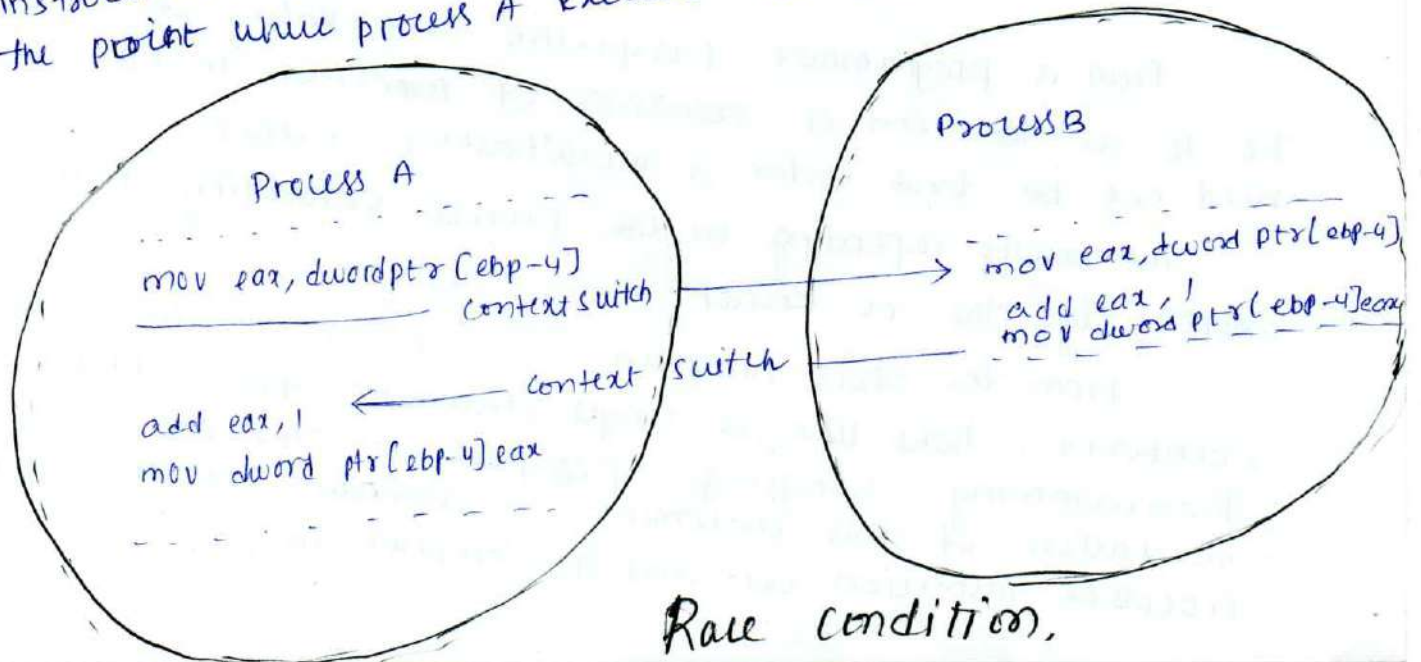 the proint where process A
Process A
mov eax, dwordptr [ebp-4]
context switch
context switch
add eax, 1
mov dword ptr [ebp-4] eax
Process B
mov eax, dword ptr [ebp-4]
add eax, 1
mov dword ptr [ebp-4] eax
Race condition.